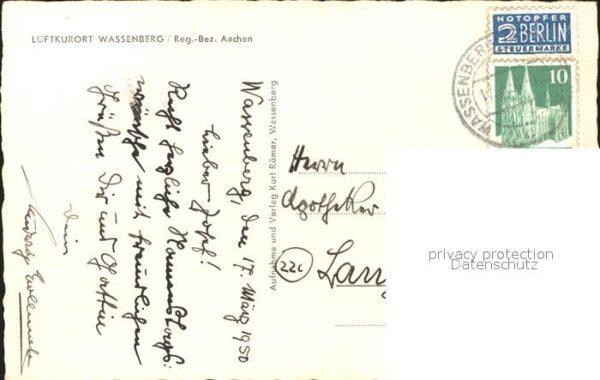 LUFTKURORT WASSENBERG / Reg.-Bez. Aachen
Wassenberg, den 17. März 1950
Lieber Josef!
Recht herzliche Namenstags:
wünsche mit freundlichen
Grüßen Dir und Gattin
Dein
Aufnahme und Verlag Kurt Römer, Wassenberg
NOTOPFER
2 BERLIN
STEUERMARKE
10
WASSENBERG
Herrn
Apotheker
(22c)
Lan
privacy protection
Datenschutz